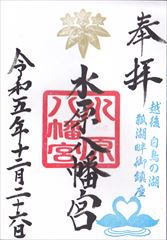 奉拝
越後 白鳥の湖
瓢湖畔御鎮座
水原八幡宮
水原
八幡宮
令和五年十二月二十六日